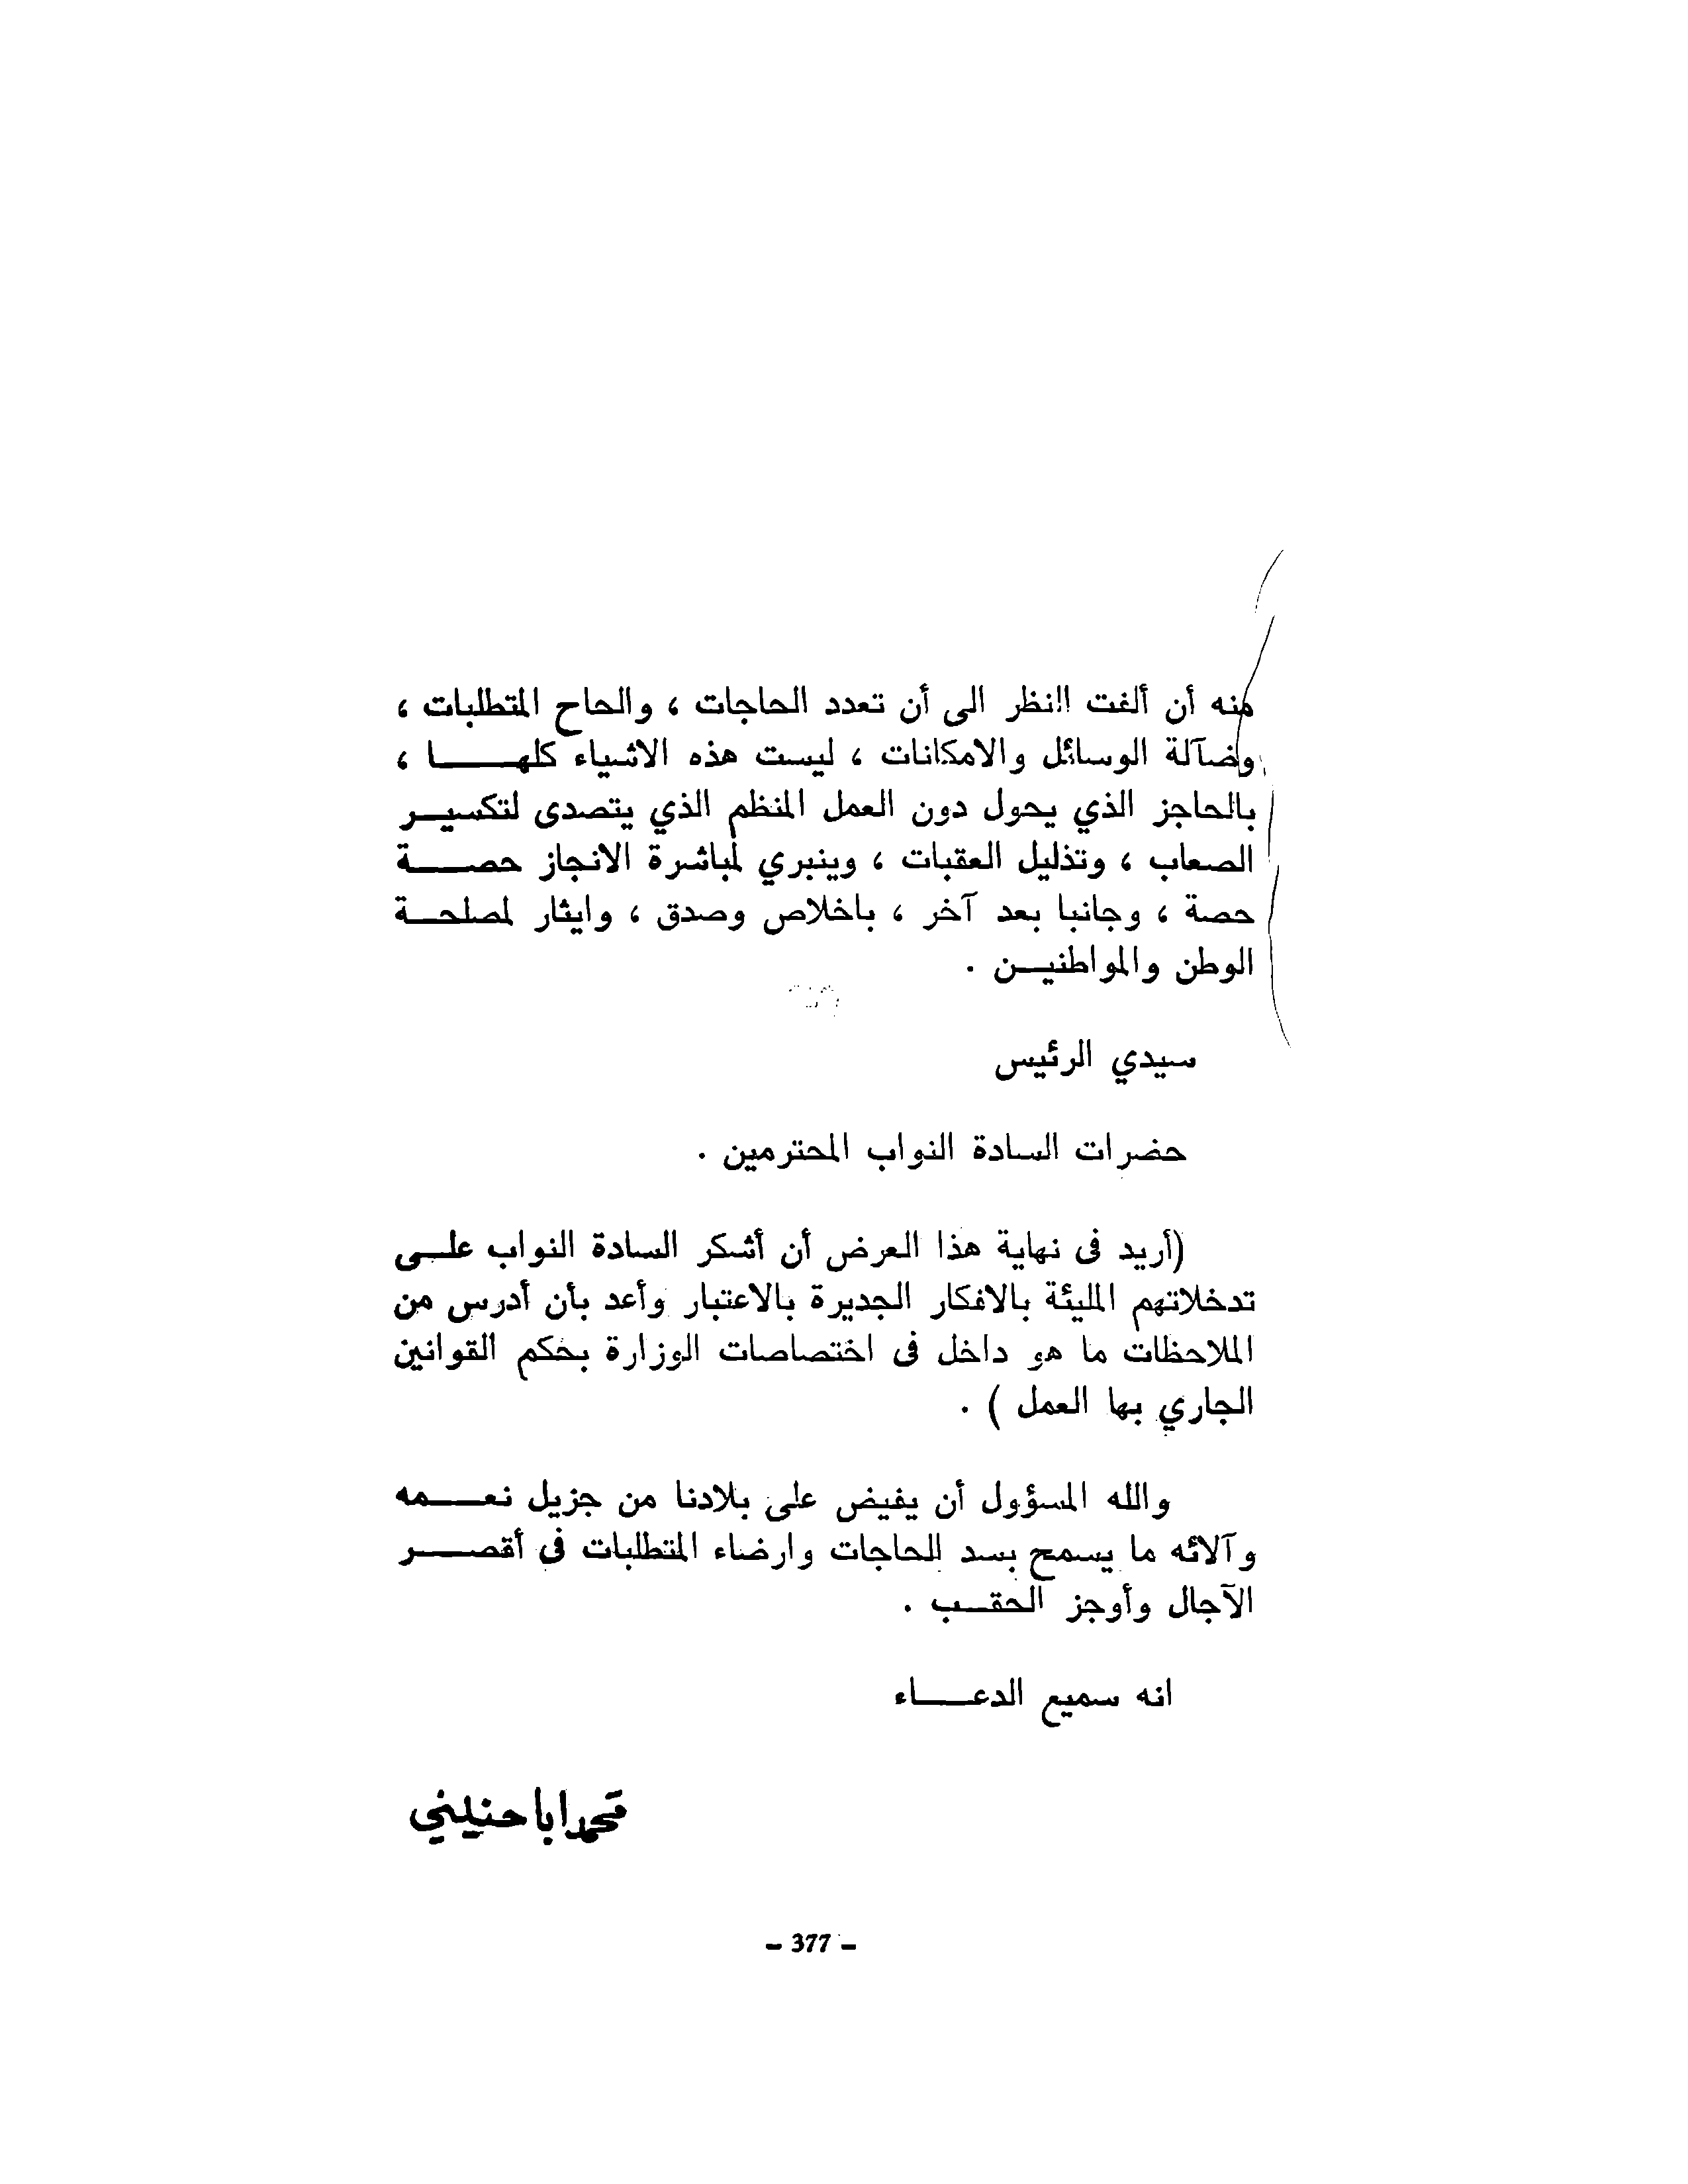 منه أن ألفت النظر الى أن تعدد الحاجات ، والحاح المتطلبات ،
وضآلة الوسائل والامكانات ، ليست هذه الاشياء كلهـــــا ،
بالحاجز الذي يحول دون العمل المنظم الذي يتصدى لتكسيــر
الصعاب ، وتذليل العقبات ، وينبري لمباشرة الانجاز حصــــة
حصة ، وجانبا بعد آخر ، باخلاص وصدق ، وايثار لمصلحــة
الوطن والمواطنيــن .
سيدي الرئيس
حضرات السادة النواب المحترمين .
(أريد فى نهاية هذا العرض أن أشكر السادة النواب علــى
تدخلاتهم المليئة بالافكار الجديرة بالاعتبار وأعد بأن أدرس من
الملاحظات ما هو داخل فى اختصاصات الوزارة بحكم القوانين
الجاري بها العمل ) .
والله المسؤول أن يفيض على بلادنا من جزيل نعــــمه
وآلائه ما يسمح بسد الحاجات وارضاء المتطلبات فى أقصــــر
الآجال وأوجز الحقــب .
انه سميع الدعــــاء
محمد ابا حنيني
- 377 -